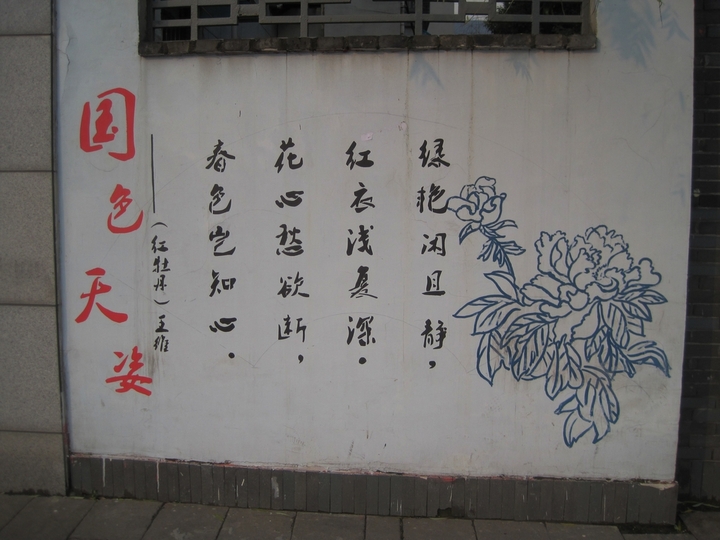 绿艳闲且静，
红衣浅复深。
花心愁欲断，
春色岂知心。
——（红牡丹）王维
国色天姿